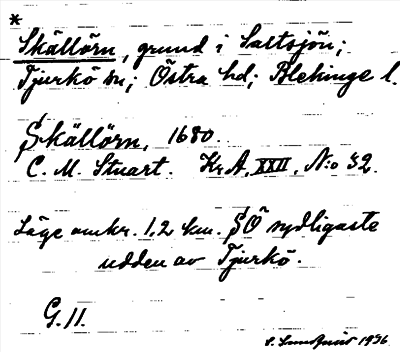 *
Skällörn, grund i Saltsjön;
Tjurkö sn; Östra hd; Blekinge l.
Skällörn, 1680.
C. M. Stuart. Kr.A, XXII, N:o 32.
Läge omkr. 1,2 km. SÖ sydligaste
udden av Tjurkö.
G. 11.
S. Lundqvist 1936